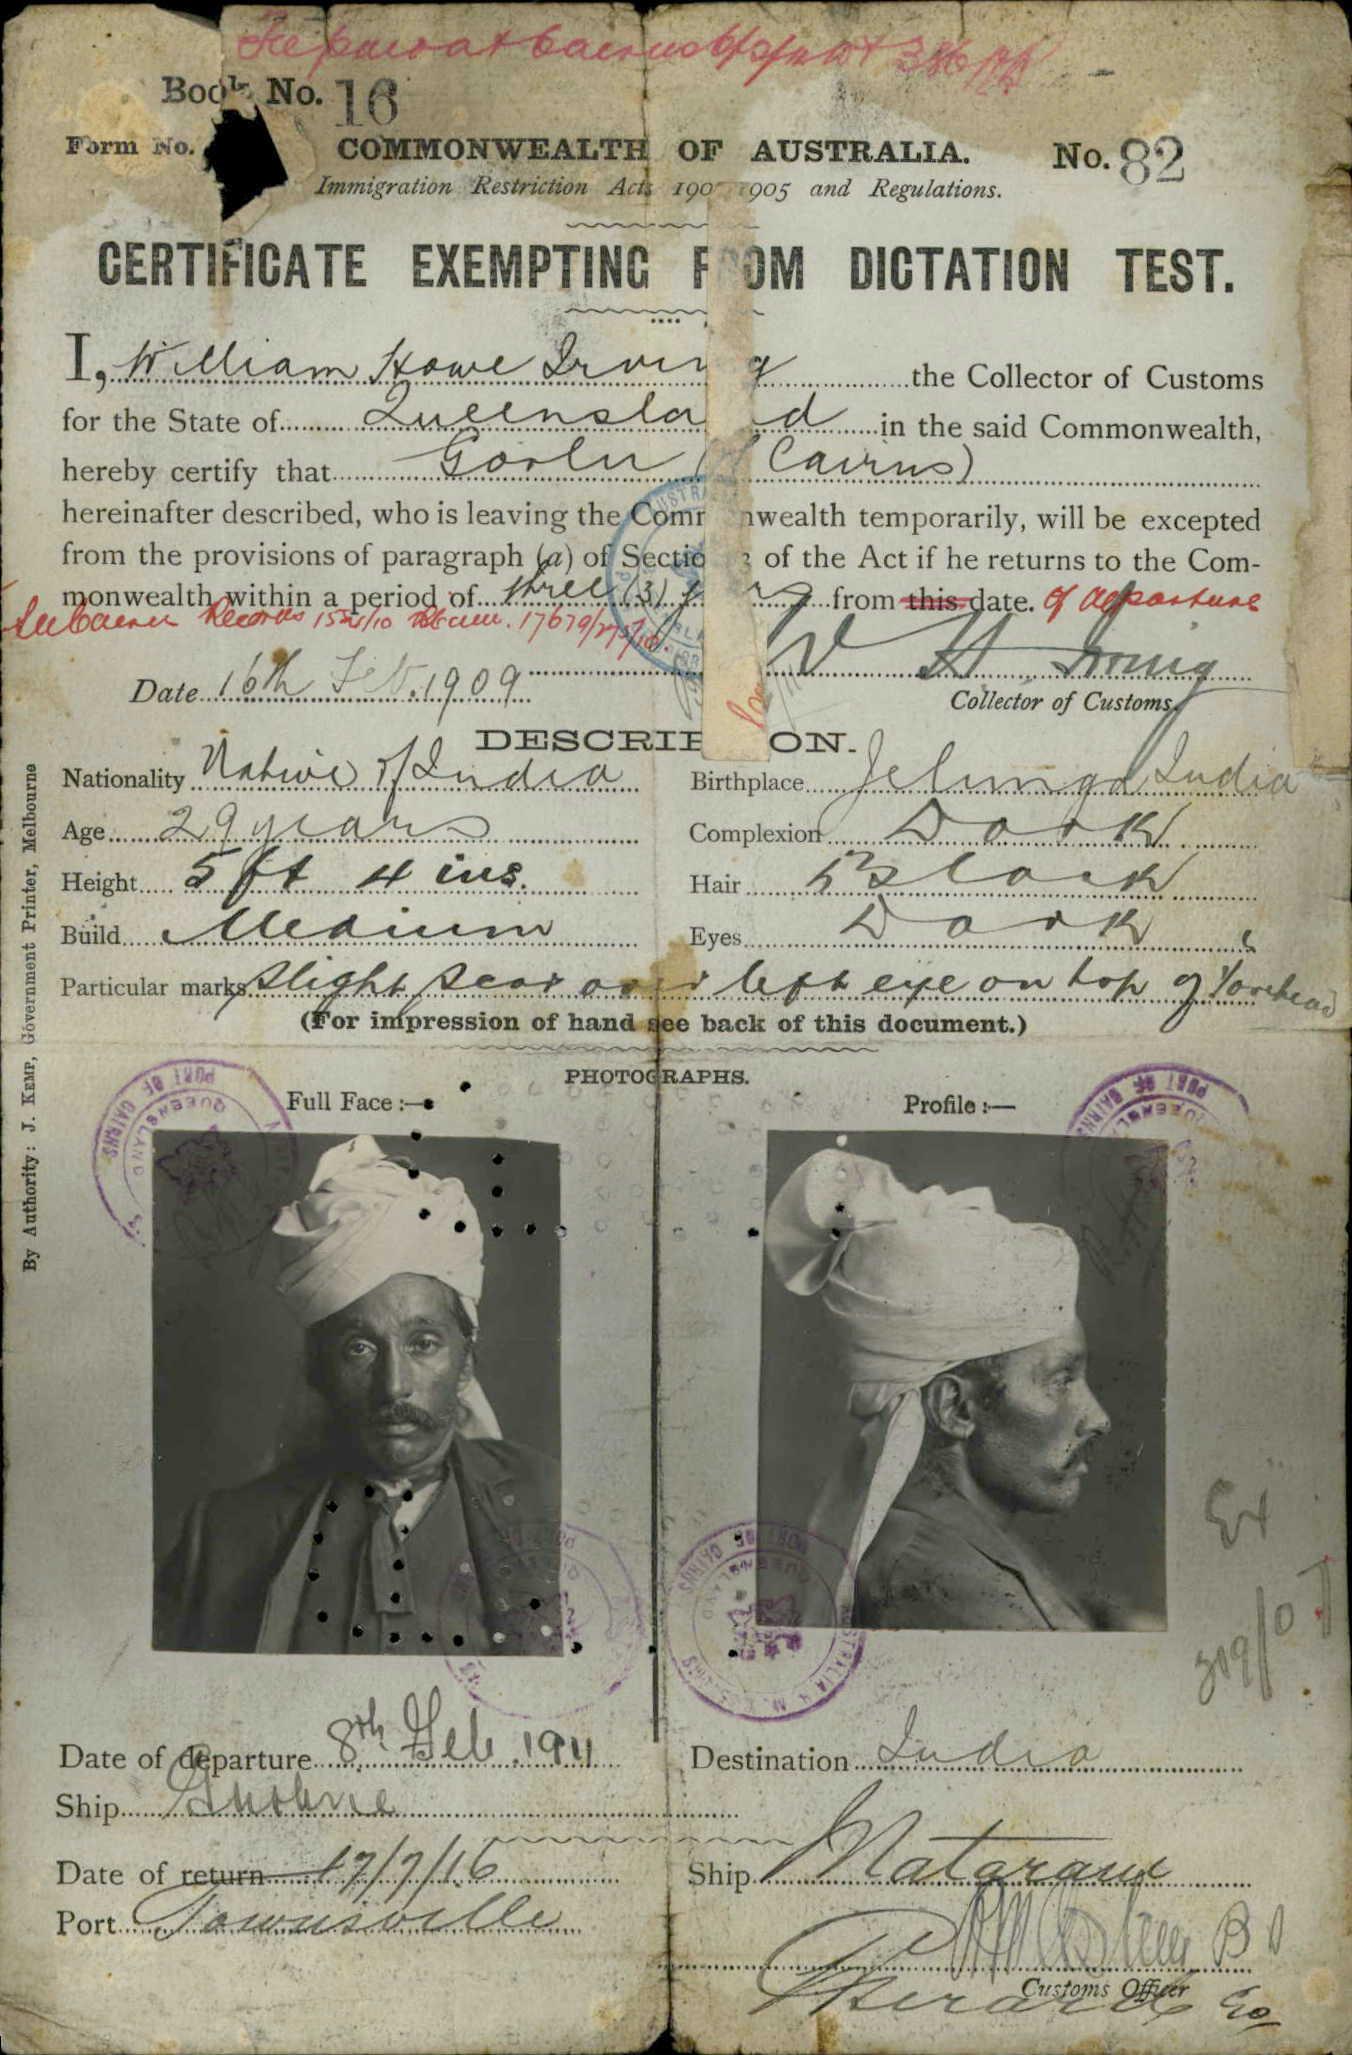 Book No. 16
Form No.
COMMONWEALTH OF AUSTRALIA. No. 82
Immigration Restriction Acts 190 1905 and Regulations.
CERTIFICATE EXEMPTING FROM DICTATION TEST.
I, William Howe Irving the Collector of Customs
for the State of Queensland in the said Commonwealth,
hereby certify that Goolu (of Cairns)
hereinafter described, who is leaving the Commonwealth temporarily, will be excepted
from the provisions of paragraph (a) of Section 3 of the Act if he returns to the Com-
monwealth within a period of three (3) years from this date. of departure
Records 17679/
W H Irving
Date 16th Feb. 1909
Collector of Customs.
DESCRIPTION.
Nationality Native of India Birthplace India
Age 29 years Complexion Dark
Height 5 ft 4 ins. Hair Black
Build Medium Eyes Dark
Particular marks slight scar over left eye on top of forehead
(For impression of hand see back of this document.)
PHOTOGRAPHS.
Full Face :— Profile :—
PORT OF CAIRNS
QUEENSLAND
PORT OF CAIRNS
PORT OF CAIRNS
Ex
319/07
Date of departure 8th Feb. 1911 Destination India
Ship
Date of return 17/7/16 Ship Mataram
Port Townsville
Customs Officer
By Authority: J. KEMP, Government Printer, Melbourne